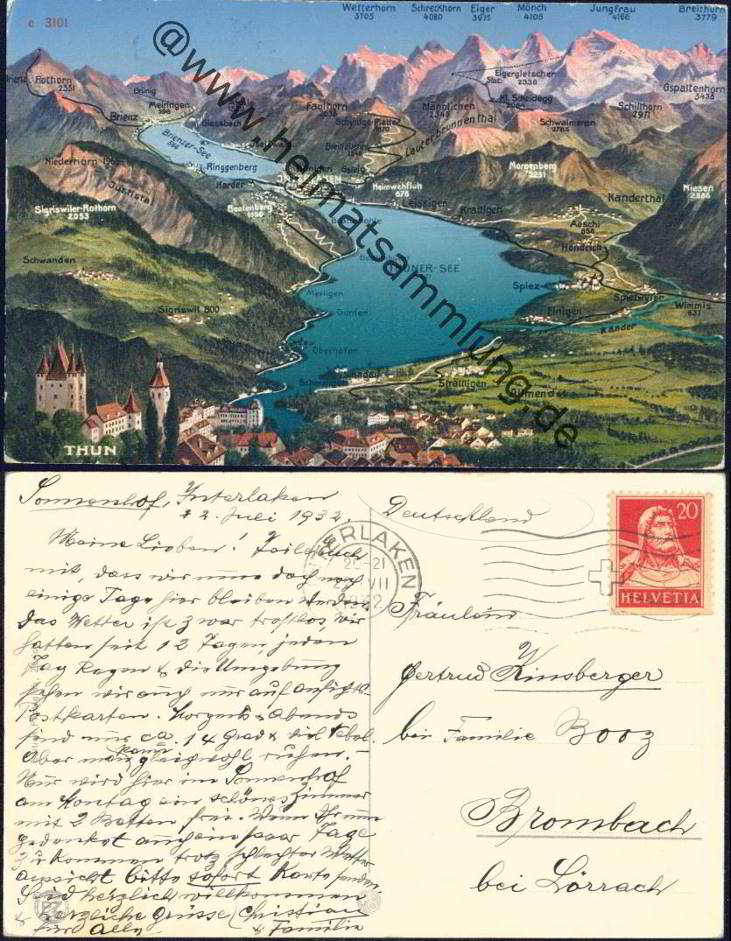 Wetterhorn Schreckhorn Eiger Mönch Jungfrau Breithorn
3705 4080 3975 4105 4166 3779
e 3101
@www.heimatsammlung.de
Eigergletscher
2330
Kl. Scheidegg
Gspaltenhorn
3438
Brienz Rothorn
2351
Brünig
Meiringen
Brienz
Giessbach
Faulhorn
Schynige Platte
Männlichen
2345
Schilthorn
2971
Lauterbrunnenthal
Schwalmeren
Brienzer-See
Ringgenberg
Niederhorn
Justistal
Harder
Heimwehfluh
676
Morgenberg
2251
Kanderthal
Niesen
2366
Sigriswiler-Rothorn
2053
Beatenberg
1150
Leissigen
Krattigen
Aeschi
Hondrich
Schwanden
THUNER-SEE
Merligen
Spiez
Spiezwyler
Wimmis
631
Sigriswil 800
Gunten
Einigen
Kander
Oberhofen
Strättligen
Allmend
THUN
Sonnenhof, Interlaken
12. Juli 1932.
Meine Lieben! Teile Euch
mit, dass wir nun doch noch
einige Tage hier bleiben werden.
Das Wetter ist zwar trostlos. Wir
hatten seit 12 Tagen, jeden
Tag Regen & die Umgebung
sehen wir auch nur auf Ansichts
Postkarten. Morgens & Abends
sind nur ca. 14 Grad & viel Nebel.
Aber man kann gleichwohl ruhen. –
Nur wird hier im Sonnenhof
am Montag ein schönes Zimmer
mit 2 Betten frei. Wenn Ihr nun
gedenket auch ein paar Tage
zu kommen trotz schlechter Wetter
aussicht bitte sofort Karte senden
Seid herzlich willkommen
& herzliche Grüsse Christian
für Alle & Familie
Deutschland
INTERLAKEN
20-21
VII
1932
20
HELVETIA
Fräulein
Gertrud Kinsberger
bei Familie Booz
Brombach
bei Lörrach